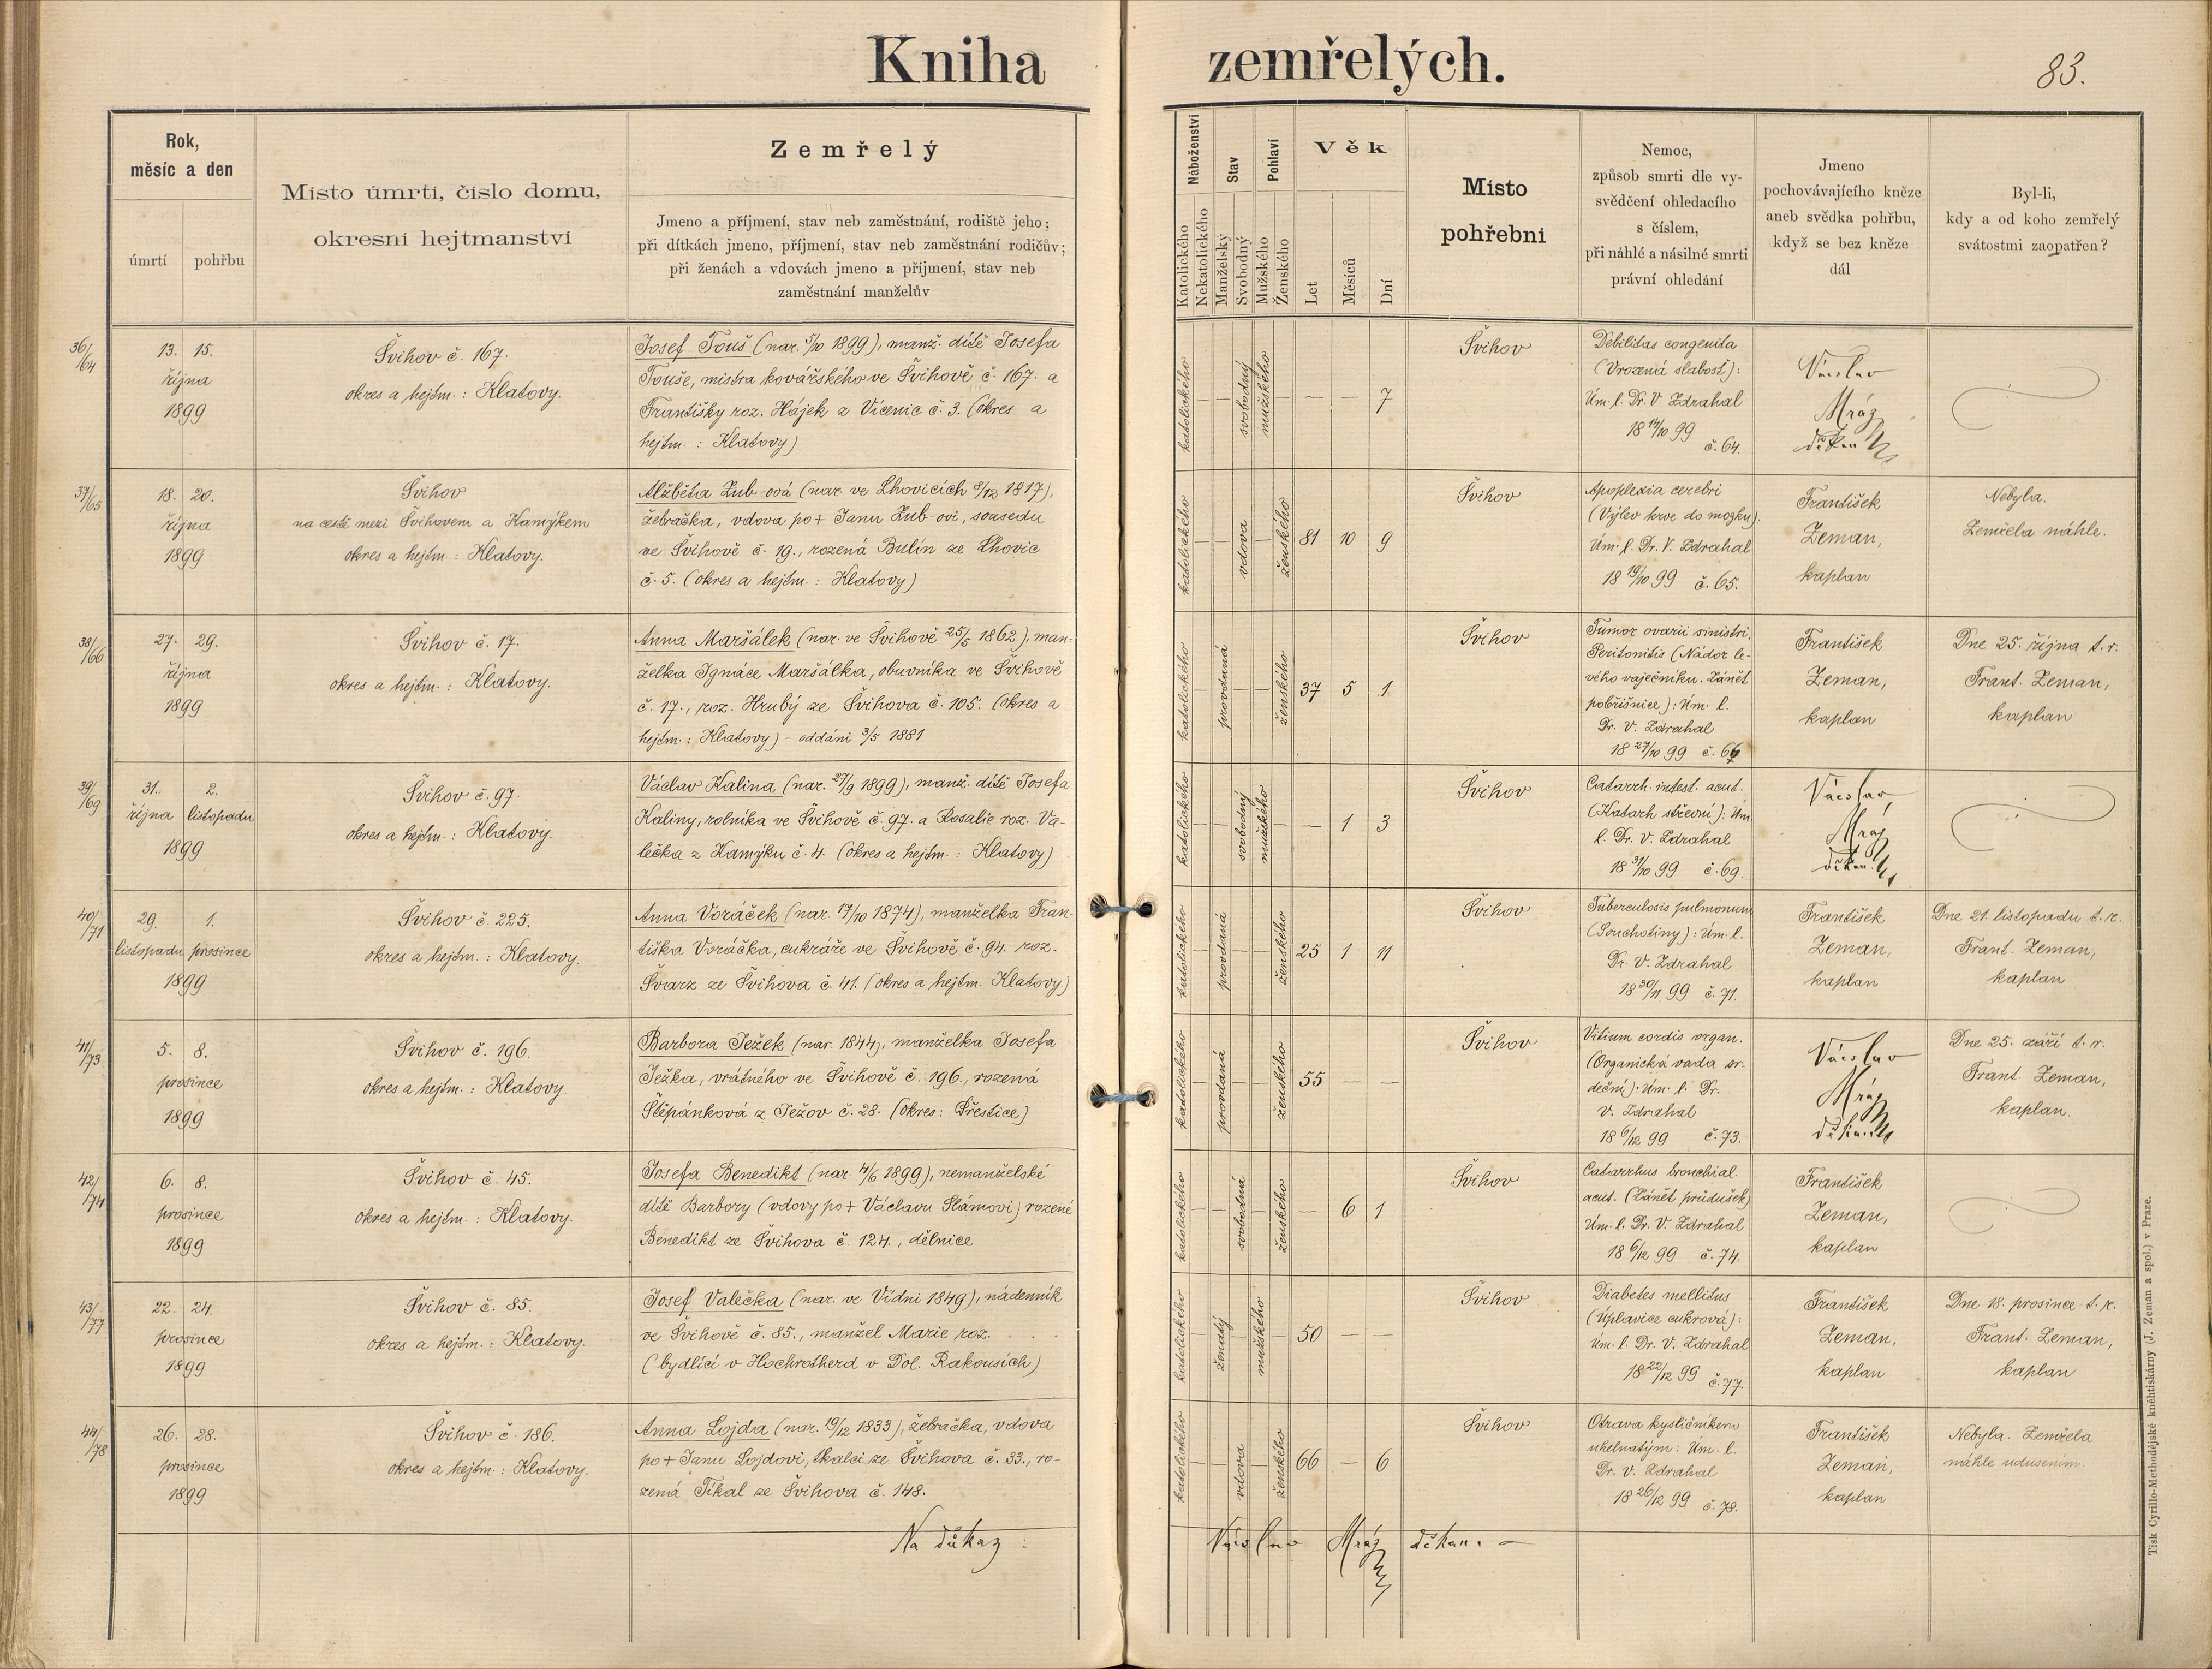 Kniha zemřelých.
83.
Rok,
měsíc a den
úmrtí
pohřbu
Místo úmrtí, číslo domu,
okresní hejtmanství
Zemřelý
Jmeno a příjmení, stav neb zaměstnání, rodiště jeho;
při dítkách jmeno, příjmení, stav neb zaměstnání rodičův;
při ženách a vdovách jmeno a příjmení, stav neb
zaměstnání manželův
Náboženství
Katolického
Nekatolického
Stav
Manželský
Svobodný
Pohlaví
Mužského
Ženského
Věk
Let
Měsíců
Dní
Místo
pohřební
Nemoc,
způsob smrti dle vy-
svědčení ohledacího
s číslem,
při náhlé a násilné smrti
právní ohledání
Jmeno
pochovávajícího kněze
aneb svědka pohřbu,
když se bez kněze
dál
Byl-li,
kdy a od koho zemřelý
svátostmi zaopatřen?
36/64
13. 15.
října
1899
Švihov č. 167.
okres a hejtm.: Klatovy.
Josef Touš (nar. 5/10 1899), manž. dítě Josefa
Touše, mistra kovářského ve Švihově č. 167. a
Františky roz. Hájek z Vícenic č. 3. (okres a
hejtm.: Klatovy)
katolického — — svobodný mužského — — — 7
Švihov
Debilitas congenita
(Vrozená slabost):
Úm. l. Dr. V. Zdrahal
18 14/10 99
č. 64.
Václav
Mráz
děkan
37/65
18. 20.
října
1899
Švihov
na cestě mezi Švihovem a Kamýkem
okres a hejtm.: Klatovy.
Alžběta Zub-ová (nar. ve Lhovicích 8/12 1817),
žebračka, vdova po + Janu Zub-ovi, sousedu
ve Švihově č. 19., rozená Bulín ze Lhovic
č. 5. (okres a hejtm.: Klatovy)
katolického — — vdova — ženského 81 10 9
Švihov
Apoplexia cerebri
(Výlev krve do mozku).
Úm. l. Dr. V. Zdrahal
18 19/10 99 č. 65.
František
Zeman,
kaplan
Nebyla.
Zemřela náhle.
38/66
27. 29.
října
1899
Švihov č. 17.
okres a hejtm.: Klatovy.
Anna Maršálek (nar. ve Švihově 25/5 1862), man-
želka Ignáce Maršálka, obuvníka ve Švihově
č. 17., roz. Hrubý ze Švihova č. 105. (okres a
hejtm.: Klatovy) - oddáni 3/5 1881
katolického — provdaná — — ženského 37 5 1
Švihov
Tumor ovarii sinistri.
Peritonitis (Nádor le-
vého vaječníku. Zánět
pobřišnice): Úm. l.
Dr. V. Zdrahal
18 27/10 99 č. 66
František
Zeman,
kaplan
Dne 25. října t. r.
Frant. Zeman,
kaplan
39/69
31. 2.
října listopadu
1899
Švihov č. 97.
okres a hejtm.: Klatovy.
Václav Kalina (nar. 27/9 1899), manž. dítě Josefa
Kaliny, rolníka ve Švihově č. 97. a Rosalie roz. Va-
lečka z Kamýku č. 4. (okres a hejtm.: Klatovy)
katolického — — svobodný mužského — — 1 3
Švihov
Catarrh. intest. acut.
(Katarh střevní): Úm.
l. Dr. V. Zdrahal
18 31/10 99 č. 69.
Václav
Mráz
děkan
40/71
29. 1.
listopadu prosince
1899
Švihov č. 225.
okres a hejtm.: Klatovy.
Anna Voráček (nar. 17/10 1874), manželka Fran-
tiška Voráčka, cukráře ve Švihově č. 94. roz.
Švarz ze Švihova č. 41. (okres a hejtm. Klatovy)
katolického — provdaná — — ženského 25 1 11
Švihov
Tuberculosis pulmonum
(Souchotiny): Úm. l.
Dr. V. Zdrahal
18 30/11 99 č. 71.
František
Zeman,
kaplan
Dne 21. listopadu t. r.
Frant. Zeman,
kaplan
41/73
5. 8.
prosince
1899
Švihov č. 196.
okres a hejtm.: Klatovy.
Barbora Ježek (nar. 1844), manželka Josefa
Ježka, vrátného ve Švihově č. 196., rozená
Štěpánková z Ježov č. 28. (okres: Přeštice)
katolického — provdaná — — ženského 55 — —
Švihov
Vitium cordis organ.
(Organická vada sr-
deční): Úm. l. Dr.
V. Zdrahal
18 6/12 99 č. 73.
Václav
Mráz
děkan
Dne 25. září t. r.
Frant. Zeman,
kaplan.
42/74
6. 8.
prosince
1899
Švihov č. 45.
okres a hejtm.: Klatovy.
Josefa Benedikt (nar. 4/6 1899), nemanželské
dítě Barbory (vdovy po + Václavu Slámovi) rozené
Benedikt ze Švihova č. 124., dělnice
katolického — — svobodná — ženského — 6 1
Švihov
Catarrhus bronchial.
acut. (Zánět průdušek)
Úm. l. Dr. V. Zdrahal
18 6/12 99 č. 74.
František
Zeman,
kaplan
43/77
22. 24.
prosince
1899
Švihov č. 85.
okres a hejtm.: Klatovy.
Josef Valečka (nar. ve Vídni 1849), nádenník
ve Švihově č. 85., manžel Marie roz. . . .
(bydlící v Hochrotherd v Dol. Rakousích)
katolického — ženatý — mužského — 50 — —
Švihov
Diabetes mellitus
(Úplavice cukrová):
Úm. l. Dr. V. Zdrahal
18 22/12 99 č. 77.
František
Zeman,
kaplan
Dne 18. prosince t. r.
Frant. Zeman,
kaplan
44/78
26. 28.
prosince
1899
Švihov č. 186.
okres a hejtm.: Klatovy.
Anna Lojda (nar. 19/12 1833), žebračka, vdova
po + Janu Lojdovi, tkalci ze Švihova č. 33., ro-
zená Tikal ze Švihova č. 148.
katolického — — vdova — ženského 66 — 6
Švihov
Otrava kysličníkem
uhelnatým: Úm. l.
Dr. V. Zdrahal
18 26/12 99 č. 78.
František
Zeman,
kaplan
Nebyla. Zemřela
náhle udušením.
Na důkaz: Václav Mráz děkan. —
Tisk Cyrillo-Methodějské kněhtiskárny (J. Zeman a spol.) v Praze.